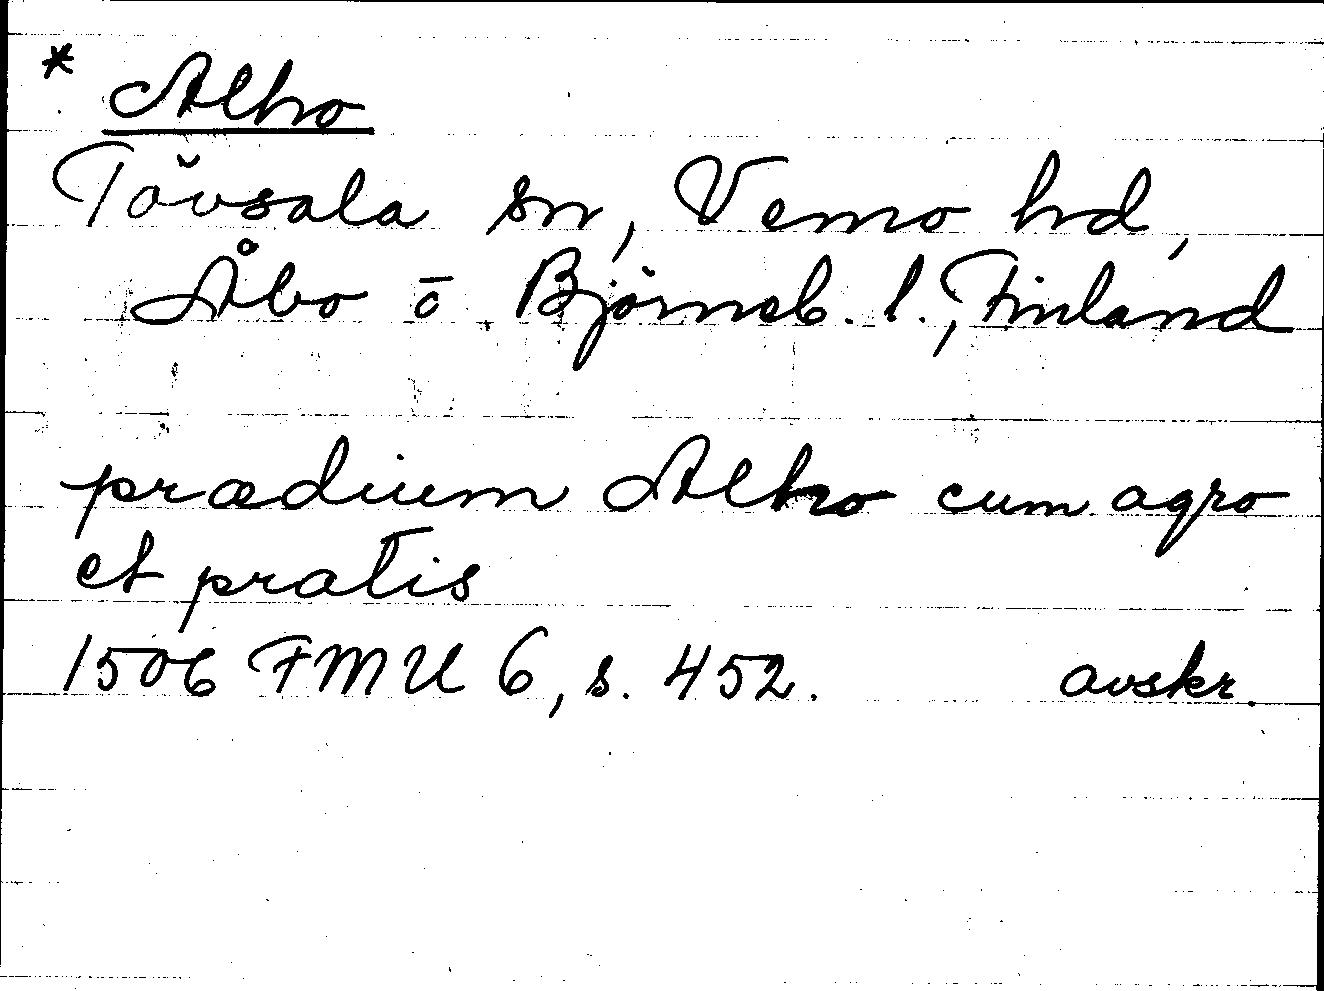 * Alho
Tövsala sn, Vemo hd,
Åbo o Björneb. l., Finland
prædium Alho cum agro
et pratis
1506 FMU 6, s. 452. avskr.